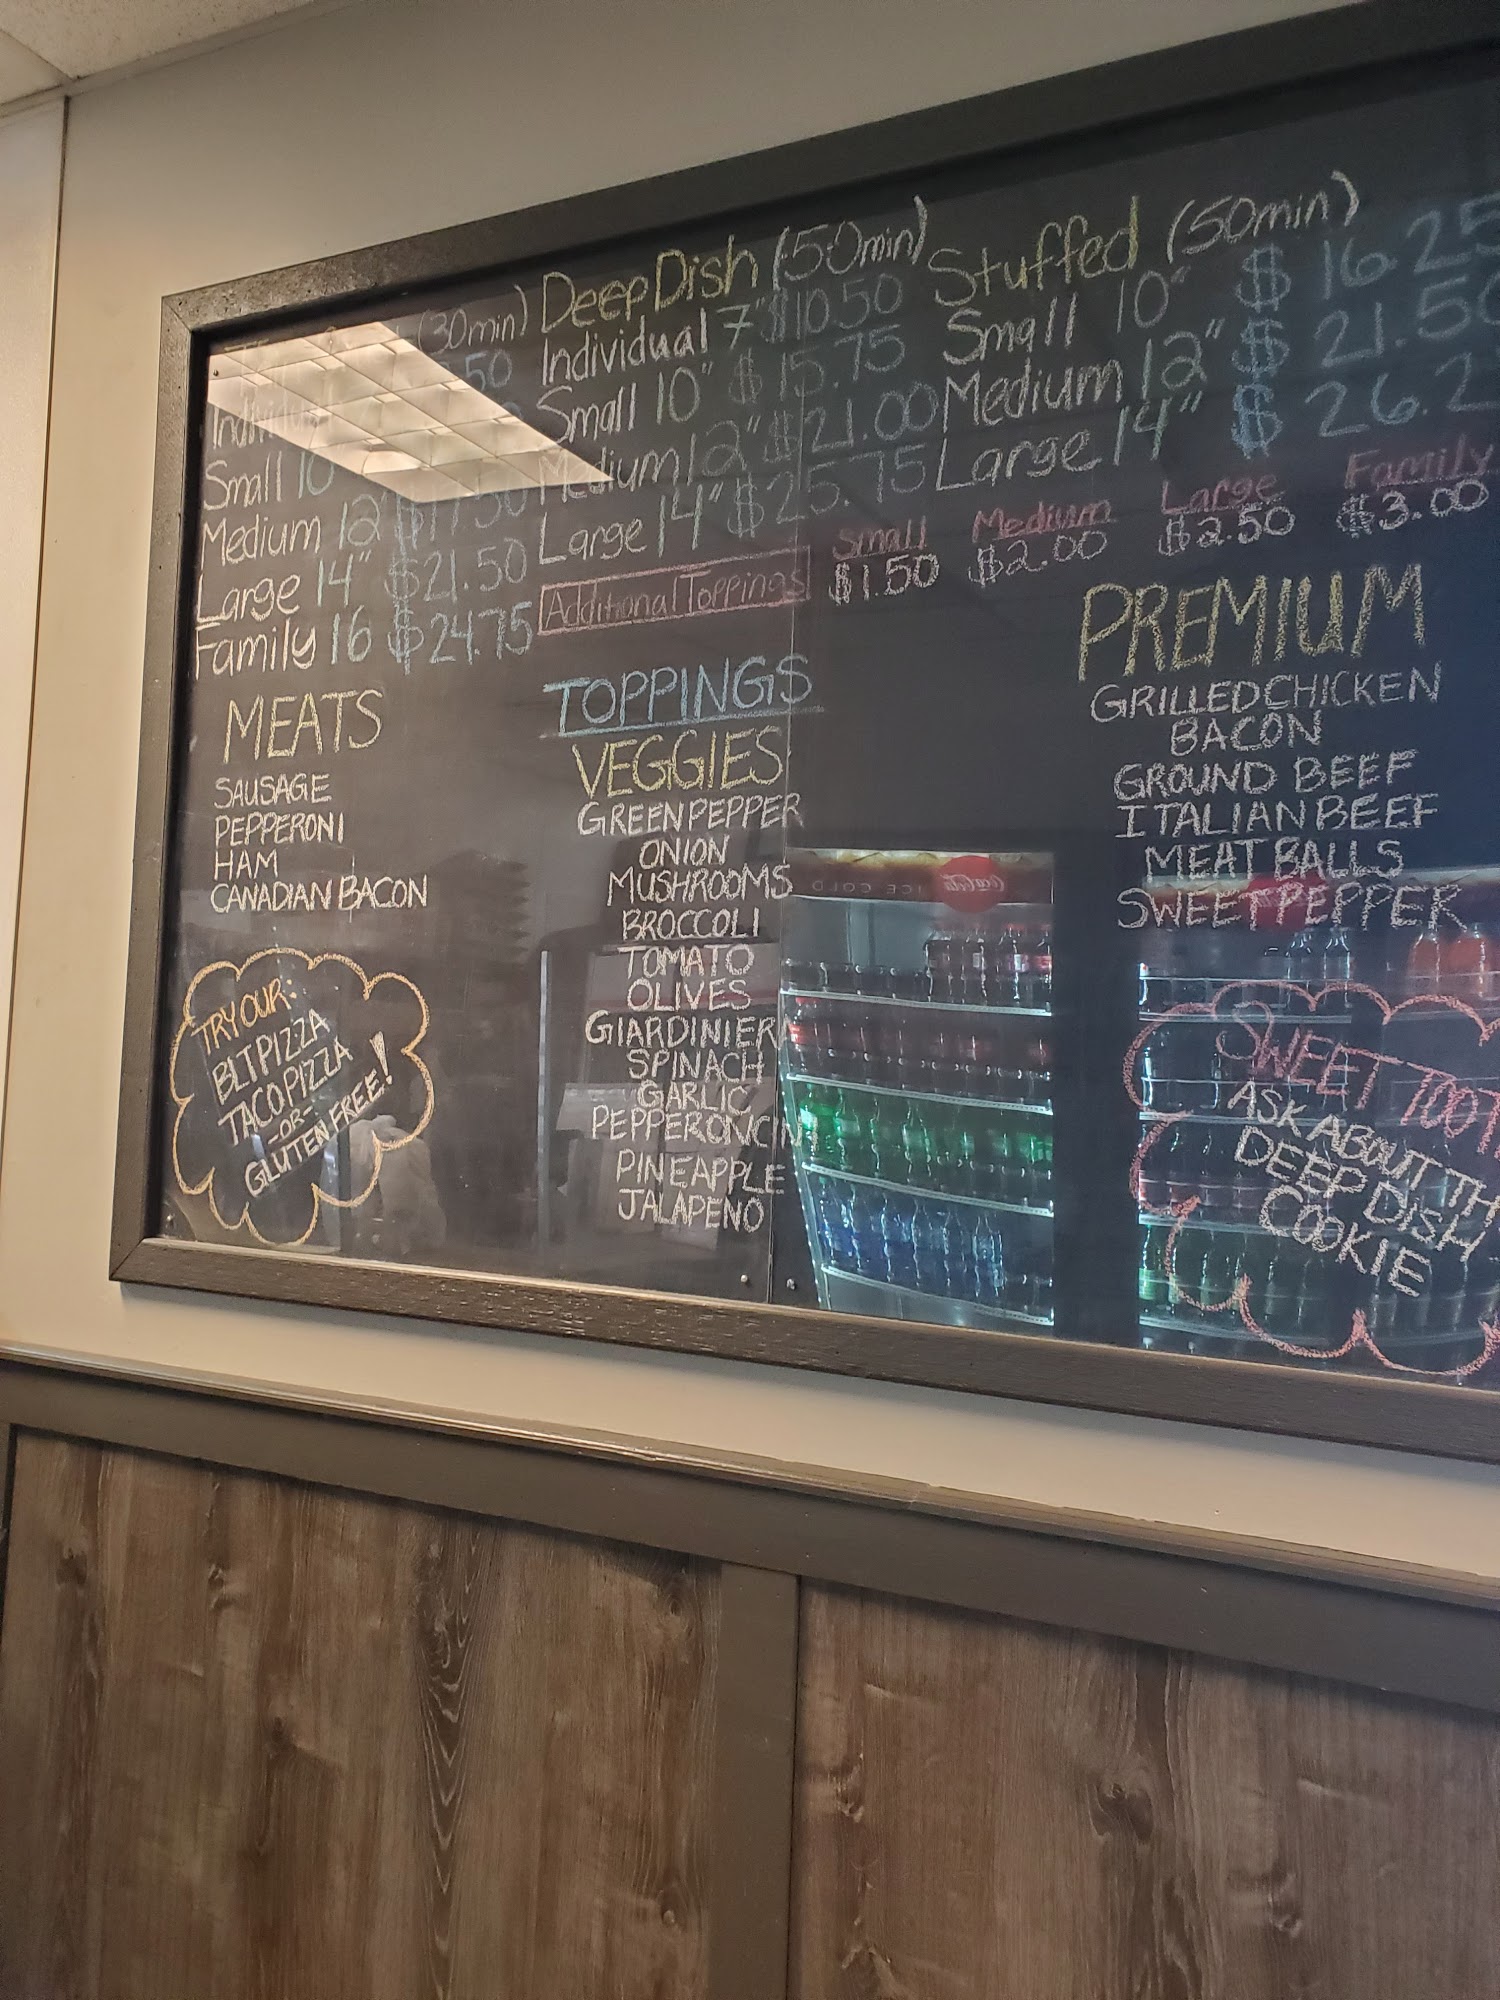 (30min)
50
Small 10
Medium 12" $17.50
Large 14" $21.50
Family 16 $24.75
Deep Dish (50min)
Individual 7" $10.50
Small 10" $15.75
Medium 12" $21.00
Large 14" $25.75
Stuffed (50min)
Small 10" $16.25
Medium 12" $21.50
Large 14" $26.2
Additional Toppings
Small Medium Large Family
$1.50 $2.00 $2.50 $3.00
TOPPINGS
MEATS
SAUSAGE
PEPPERONI
HAM
CANADIAN BACON
VEGGIES
GREEN PEPPER
ONION
MUSHROOMS
BROCCOLI
TOMATO
OLIVES
GIARDINIER
SPINACH
GARLIC
PEPPERONCIN
PINEAPPLE
JALAPENO
PREMIUM
GRILLED CHICKEN
BACON
GROUND BEEF
ITALIAN BEEF
MEAT BALLS
SWEET PEPPER
TRY OUR:
BLT PIZZA
TACO PIZZA
-OR-
GLUTEN FREE!
SWEET TOOT
ASK ABOUT TH
DEEP DISH
COOKIE
Coca-Cola
ICE COLD